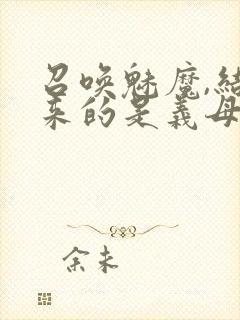 召唤魅魔,结
来的是义母
余未